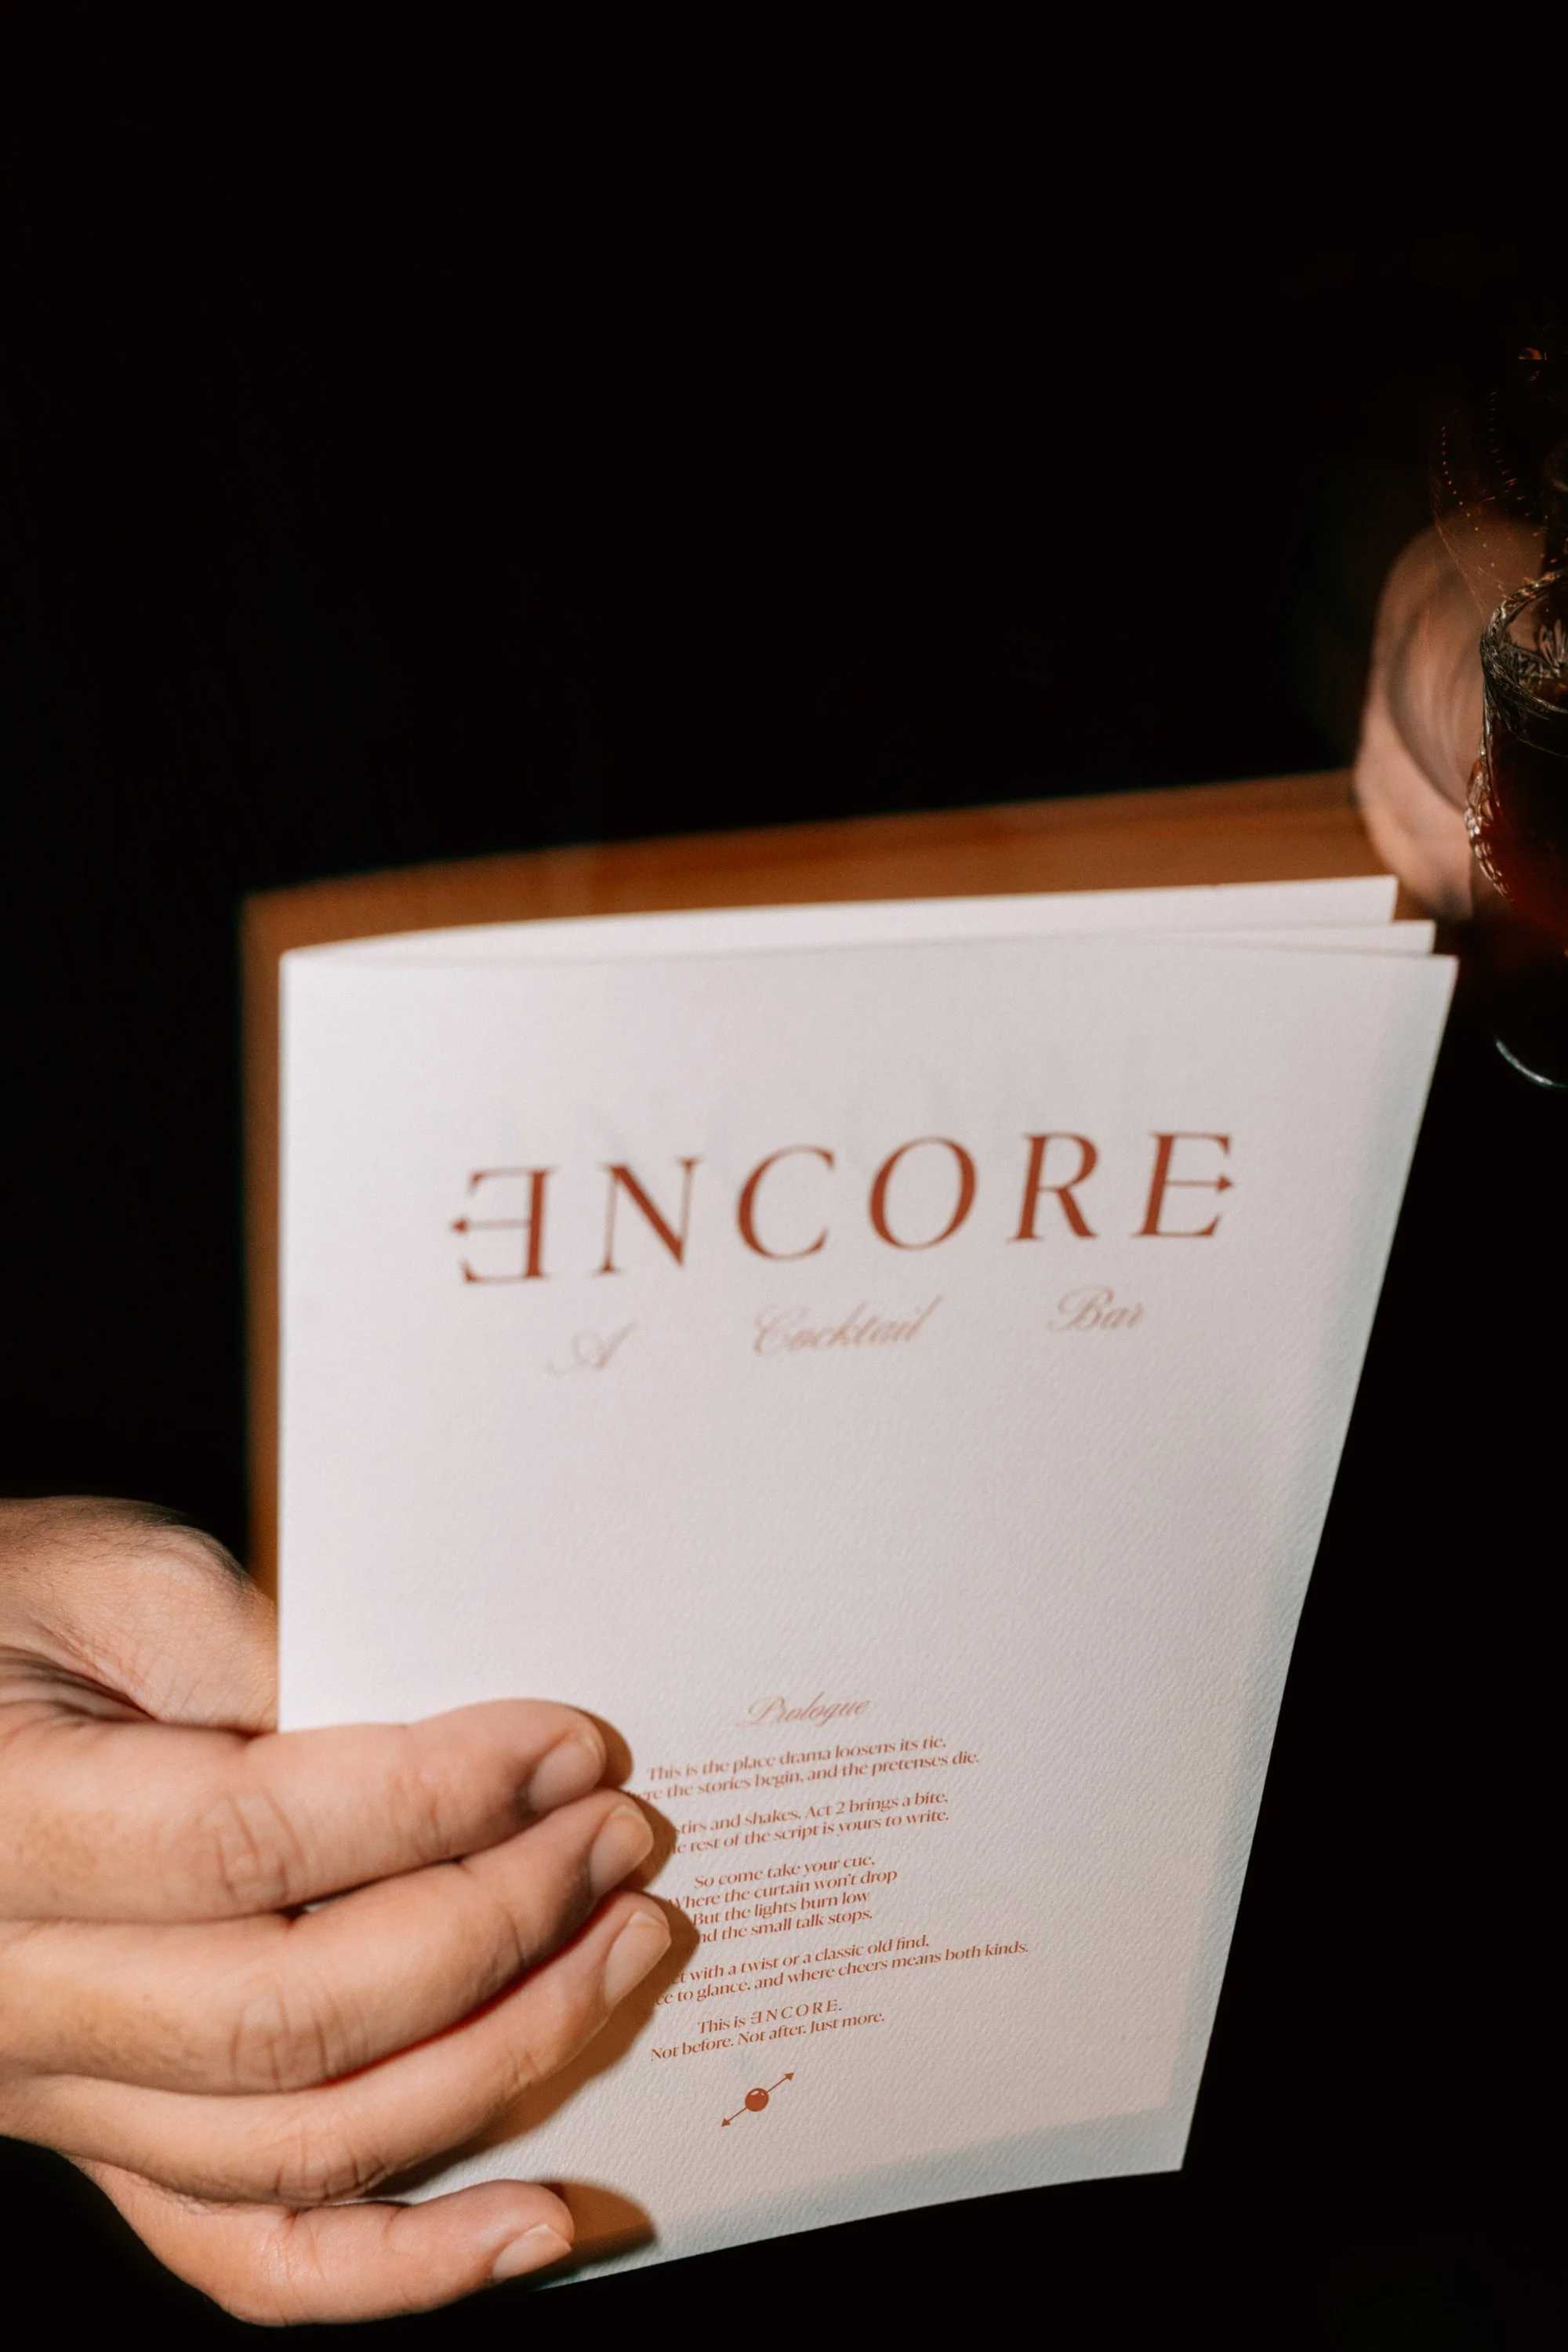 ƎNCORE
A Cocktail Bar
Prologue
This is the place drama loosens its tie,
the stories begin, and the pretenses die.
and shakes, Act 2 brings a bite,
rest of the script is yours to write.
So come take your cue,
Where the curtain won't drop
But the lights burn low
the small talk stops.
with a twist or a classic old find,
to glance, and where cheers means both kinds.
This is ƎNCORE.
Not before. Not after. Just more.